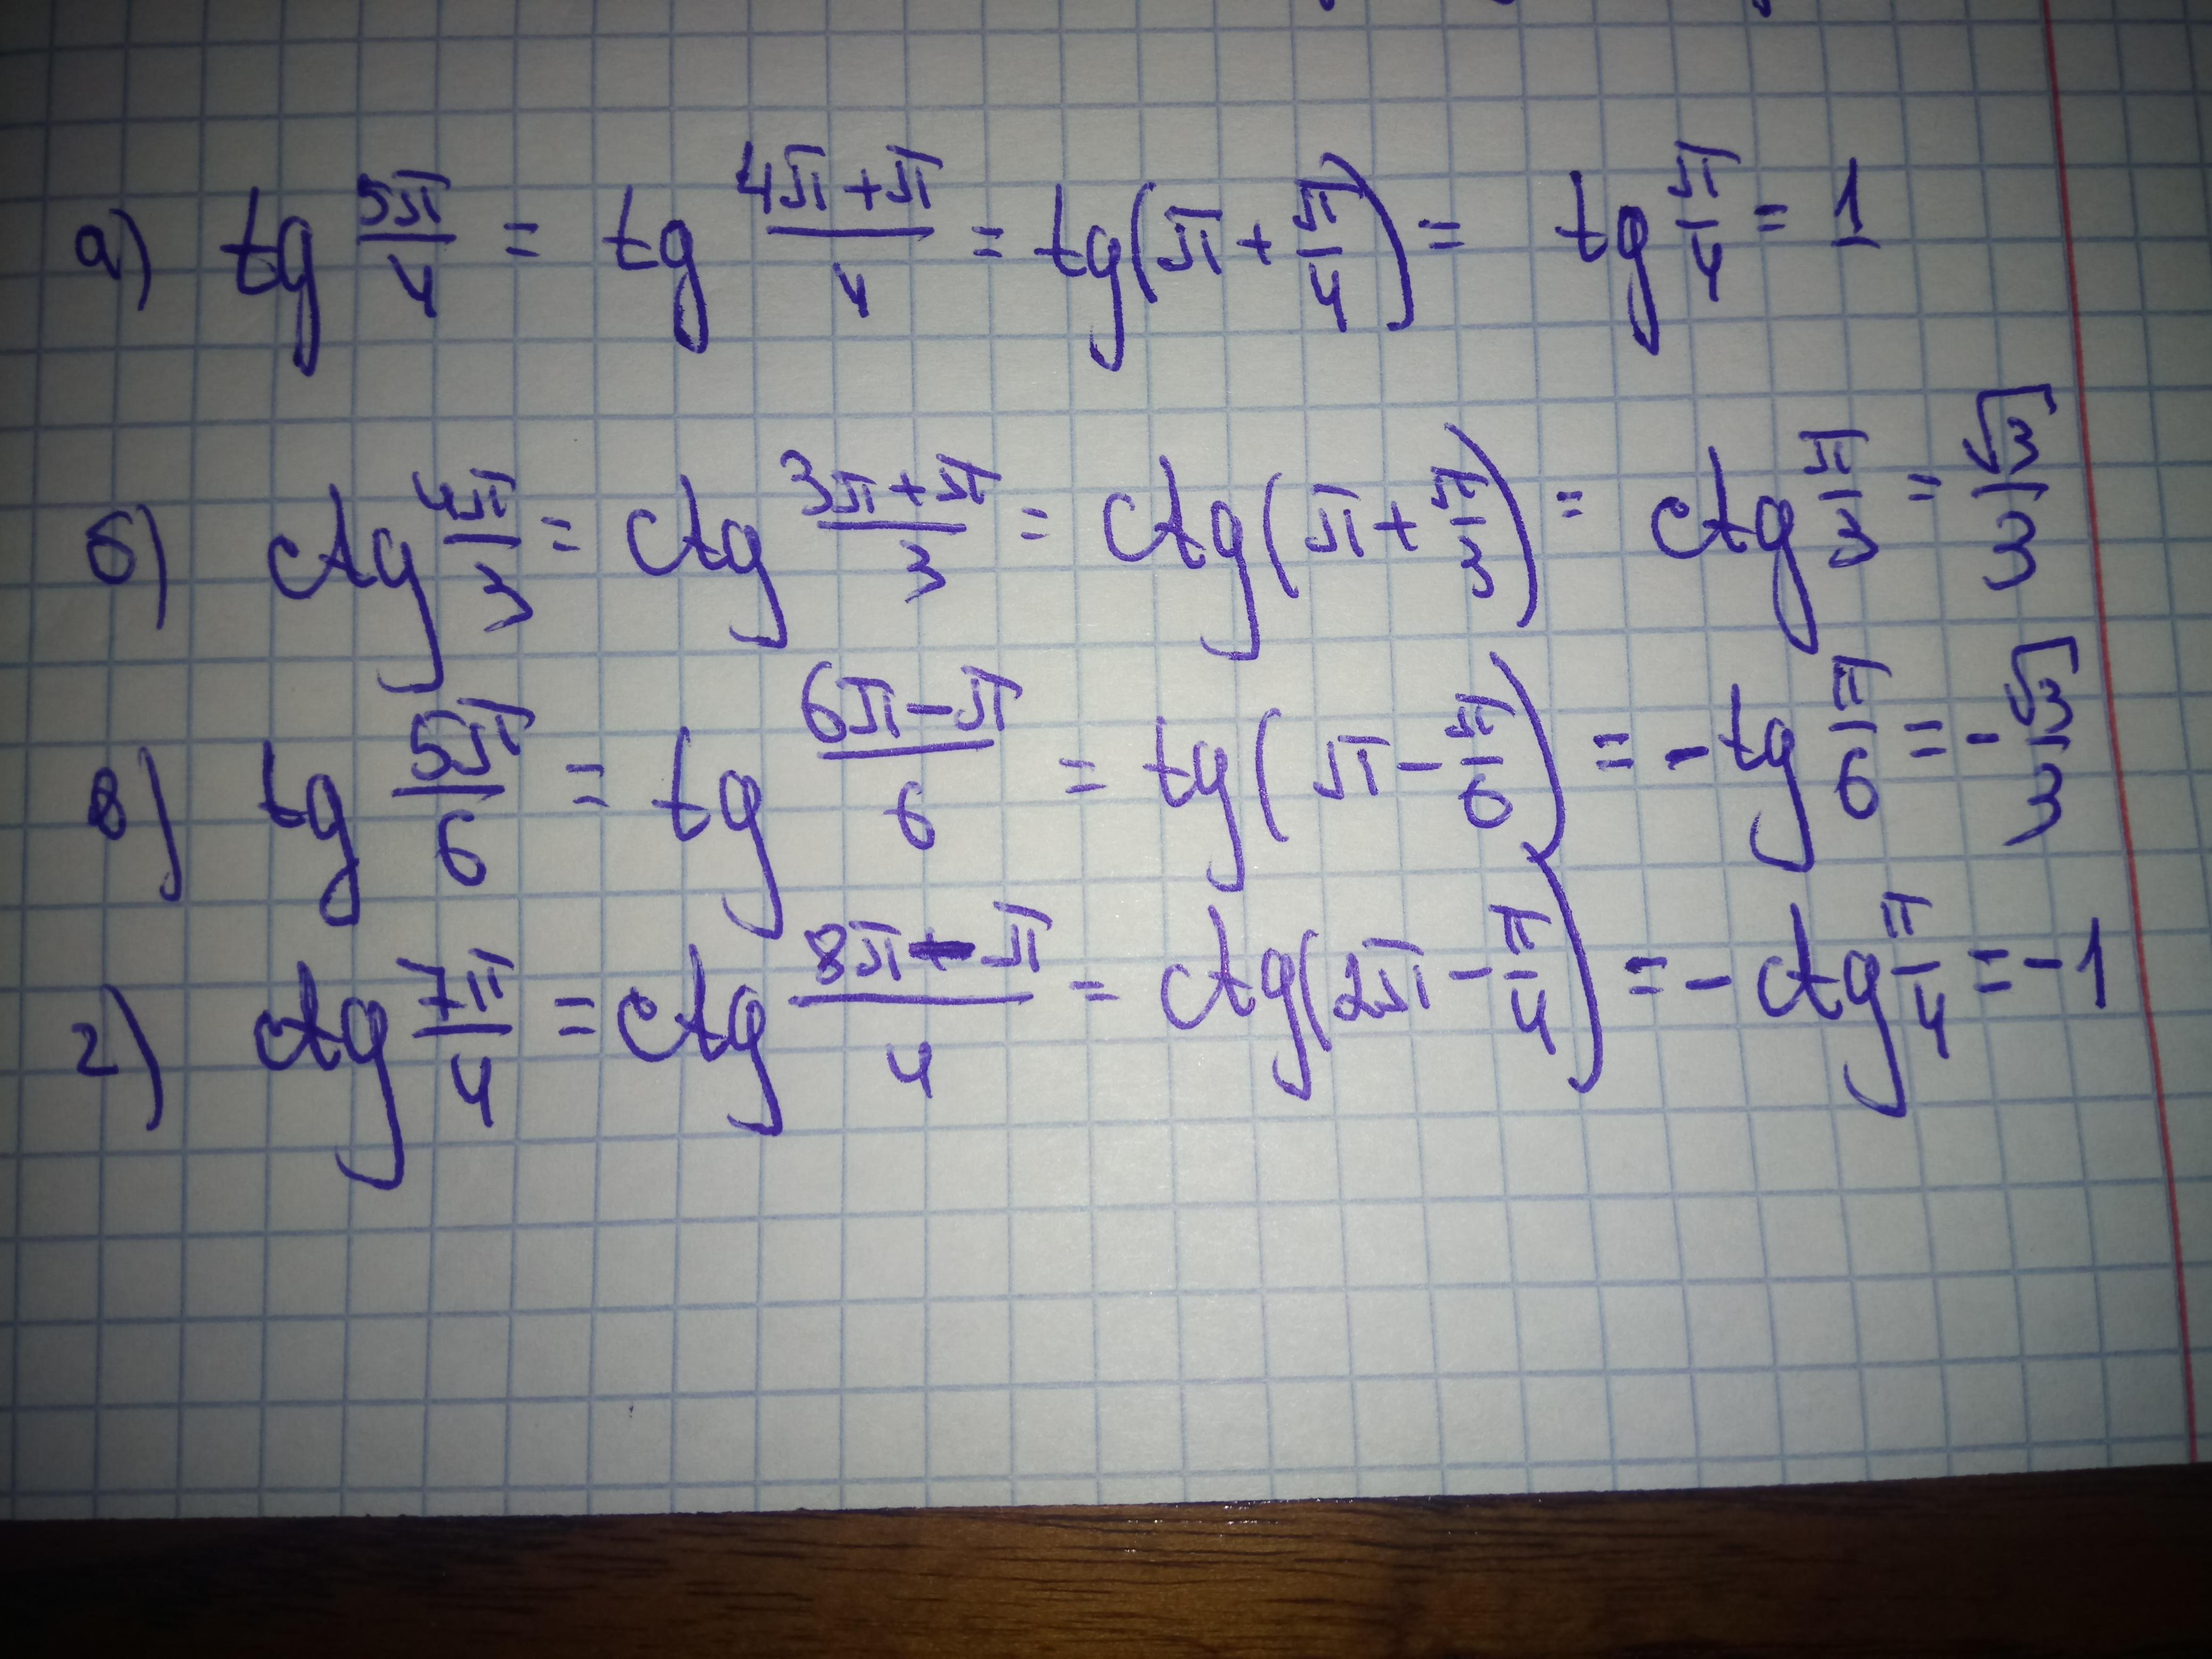 а) tg 5π/4 = tg (4π+π)/4 = tg(π + π/4) = tg π/4 = 1
б) ctg 4π/3 = ctg (3π+π)/3 = ctg(π + π/3) = ctg π/3 = √3/3
в) tg 5π/6 = tg (6π-π)/6 = tg(π - π/6) = -tg π/6 = -√3/3
г) ctg 7π/4 = ctg (8π-π)/4 = ctg(2π - π/4) = -ctg π/4 = -1